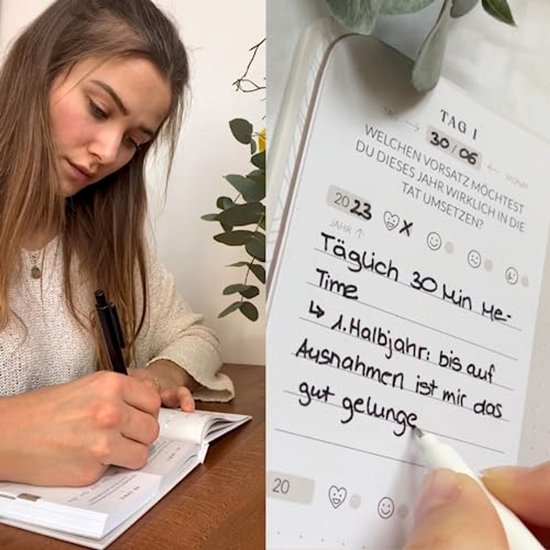 TAG 1
TAG → 30/06 ← MONAT
WELCHEN VORSATZ MÖCHTEST
DU DIESES JAHR WIRKLICH IN DIE
TAT UMSETZEN?
2023 X
JAHR ↑
Täglich 30 Min Me-
Time
↳ 1. Halbjahr: bis auf
Ausnahmen ist mir das
gut gelunge
20